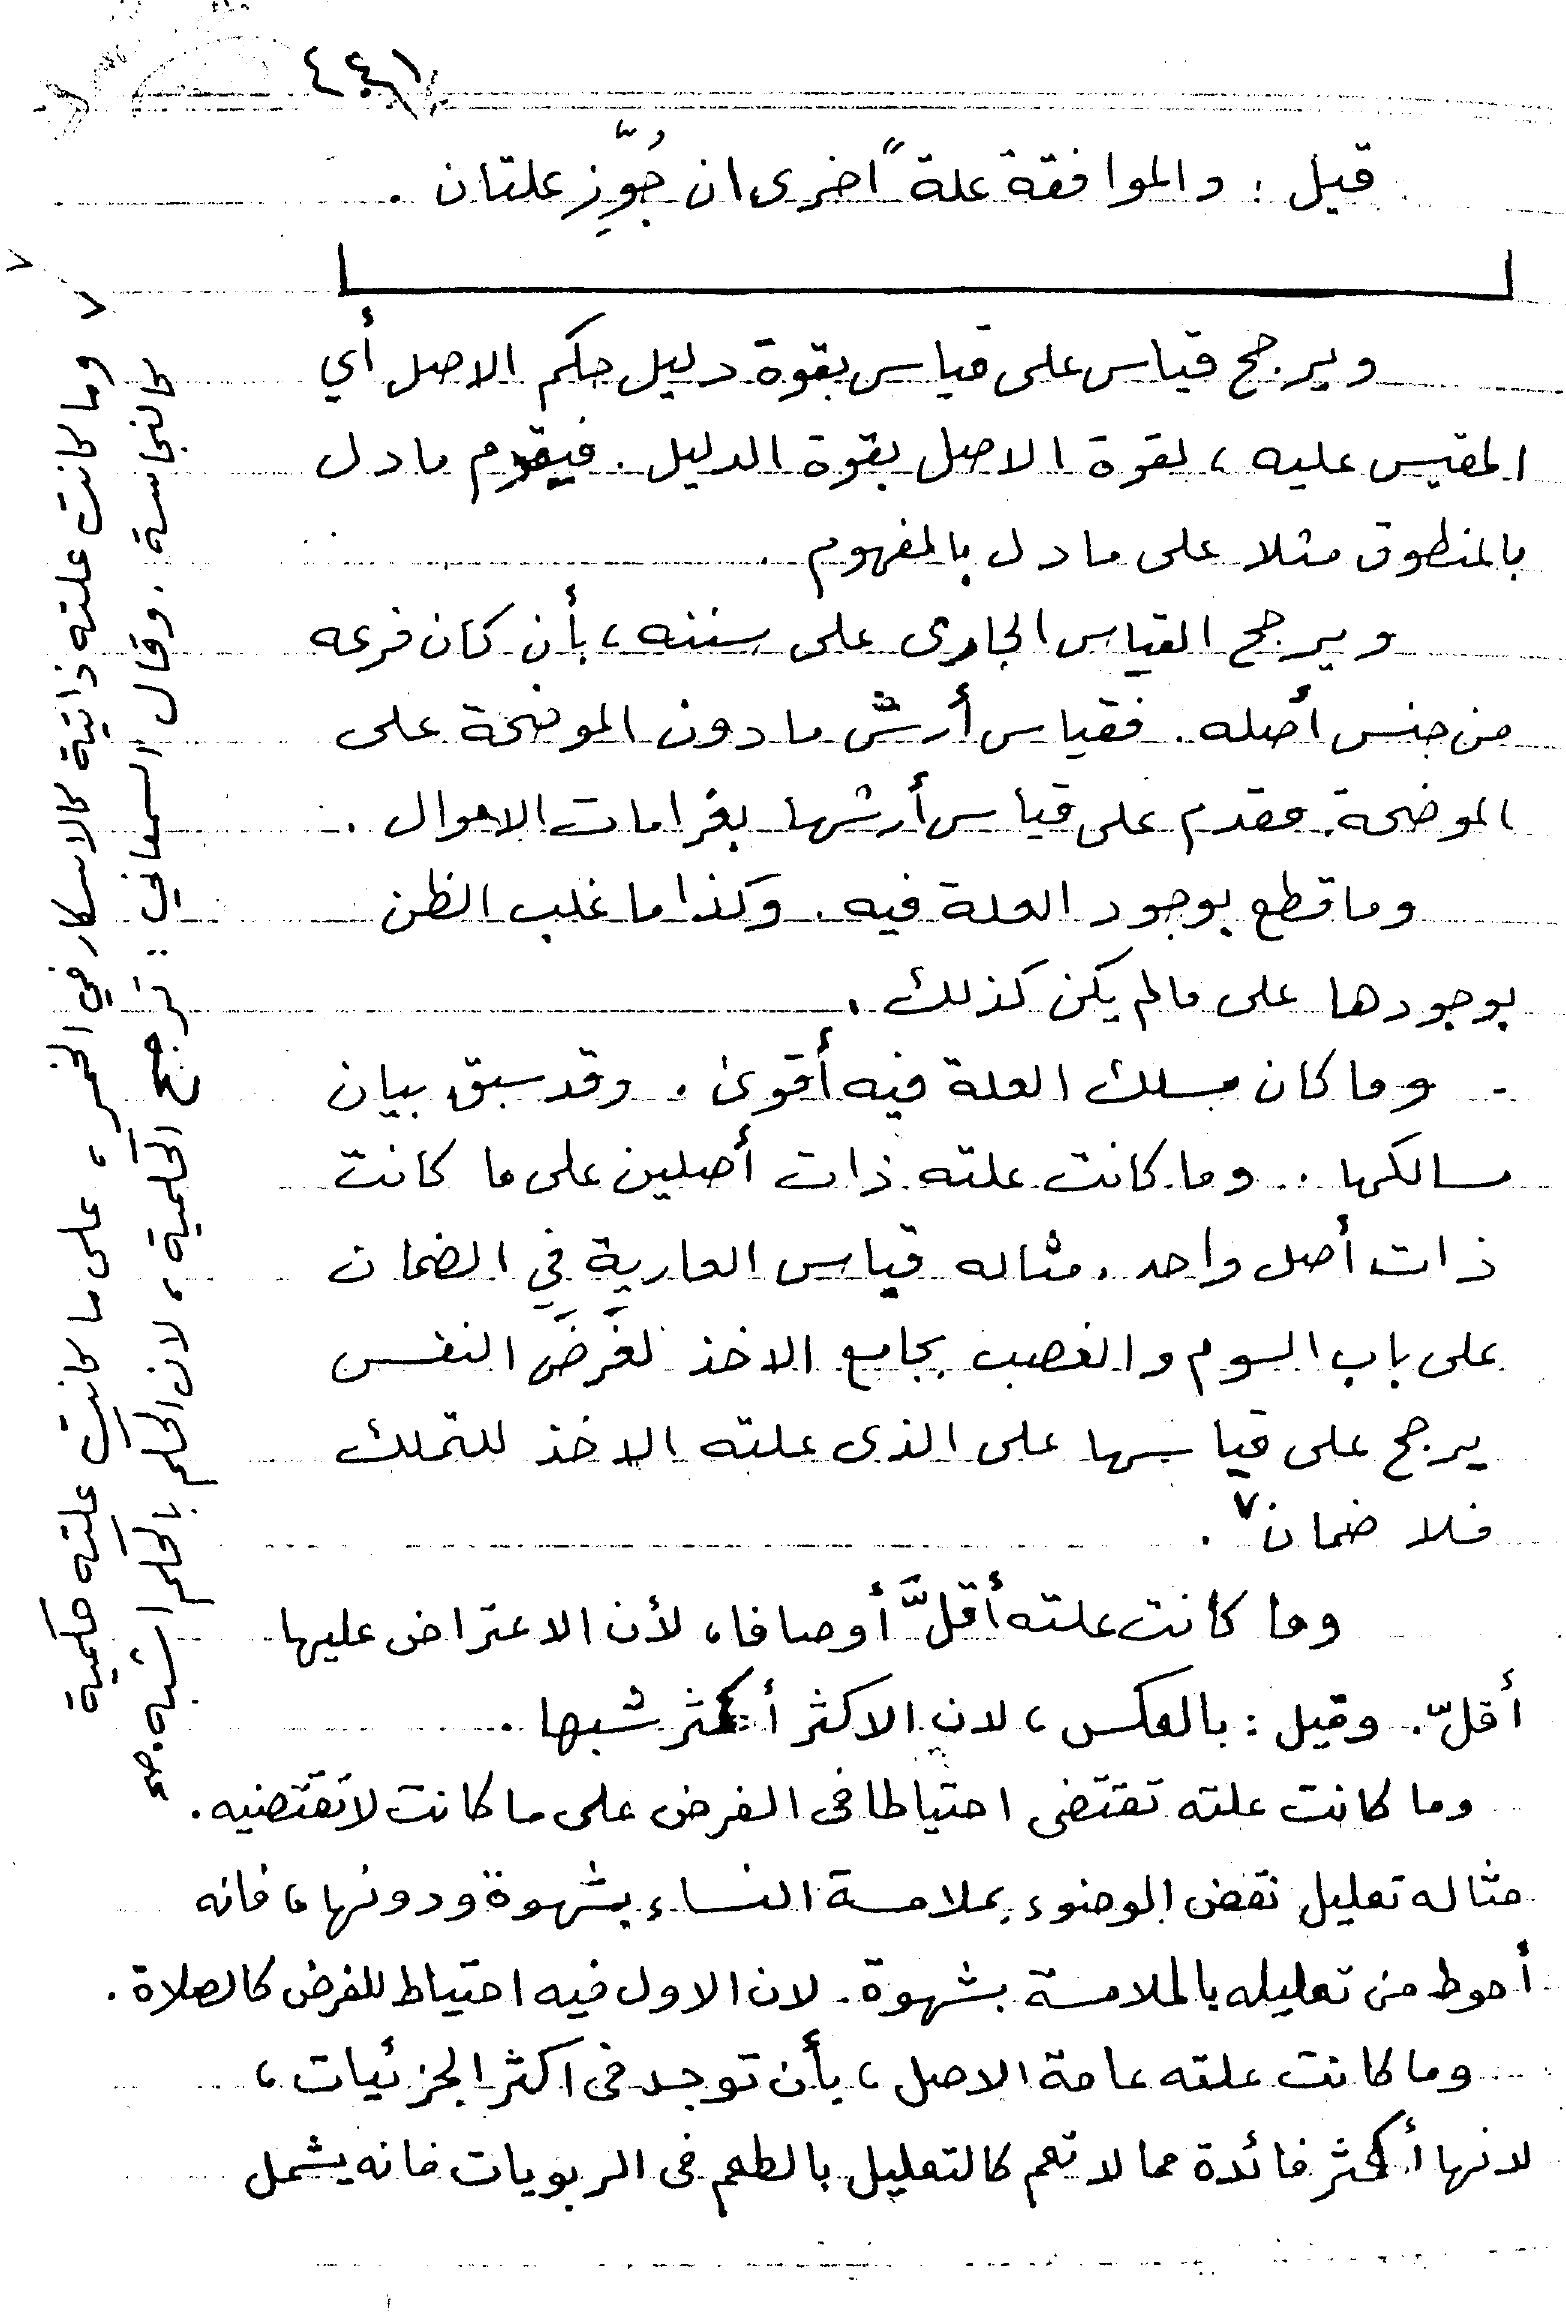 ٤٤١
قيل : والموافقة علةً اخرى ان جُوِّز علتان .
ويرجح قياس على قياس بقوة دليل حكم الاصل أي
المقيس عليه ، لقوة الاصل بقوة الدليل . فيقدم ما دل
بالمنطوق مثلا على ما دل بالمفهوم .
ويرجح القياس الجارى على سننه ، بأن كان فرعه
من جنس أصله . فقياس أرش ما دون الموضحة على
الموضحة . مقدم على قياس أرشها بغرامات الاموال .
وما قطع بوجود العلة فيه . وكذا ما غلب الظن
بوجودها على مالم يكن كذلك .
وما كان مسلك العلة فيه أقوى . وقد سبق بيان
مسالكها . وما كانت علته ذات أصلين على ما كانت
ذات أصل واحد . مثاله قياس العارية في الضمان
على باب السوم والغصب بجامع الاخذ لغَرَض النفس
يرجح على قياسها على الذى علته الاخذ للتملك
فلا ضمان ٧ .
وما كانت علته أقلَّ أوصافا ، لأن الاعتراض عليها
أقلّ . وقيل : بالعكس ، لان الاكثر أكثر شبها .
وما كانت علته تقتضى احتياطا فى الفرض على ما كانت لا تقتضيه .
مثاله تعليل نقض الوضوء بملامسة النساء بشهوة ودونها ، فانه
أحوط من تعليله بالملامسة بشهوة . لان الاول فيه احتياط للفرض كالصلاة .
وما كانت علته عامة الاصل ، بأن توجد فى اكثر الجزئيات ،
لانها أكثر فائدة مما لا تعم كالتعليل بالطعم فى الربويات فانه يشمل
٧ وما كانت علته ذاتية كالاسكار في الخمر ، على ما كانت علته حكمية
كالنجاسة . وقال السمعاني : ترجح الحكمية ، لان الحكم بالحكم اشبه . صح